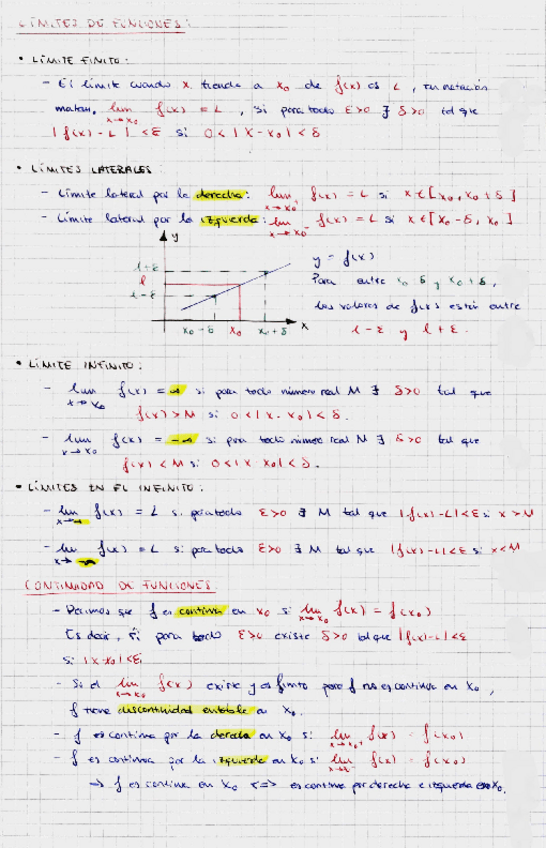 LÍMITES DE FUNCIONES:
• LÍMITE FINITO:
- El límite cuando x tiende a x₀ de f(x) es L, en notación
matem, lim x→x₀ f(x) = L, si para todo ε>0 ∃ δ>0 tal que
|f(x)-L|<ε si 0<|x-x₀|<δ
• LÍMITES LATERALES:
- Límite lateral por la derecha: lim x→x₀⁺ f(x) = L si x∈[x₀, x₀+δ]
- Límite lateral por la izquierda: lim x→x₀⁻ f(x) = L si x∈[x₀-δ, x₀]
y
l+ε
l
l-ε
x₀-δ x₀ x₀+δ x
y = f(x)
Para entre x₀-δ y x₀+δ,
los valores de f(x) están entre
l-ε y l+ε.
• LÍMITE INFINITO:
- lim x→x₀ f(x) = ∞ si para todo número real M ∃ δ>0 tal que
f(x)>M si 0<|x-x₀|<δ.
- lim x→x₀ f(x) = -∞ si para todo número real M ∃ δ>0 tal que
f(x)<M si 0<|x-x₀|<δ.
• LÍMITES EN EL INFINITO:
- lim x→∞ f(x) = L si para todo ε>0 ∃ M tal que |f(x)-L|<ε si x>M
- lim f(x) = L si para todo ε>0 ∃ M tal que |f(x)-L|<ε si x<M
CONTINUIDAD DE FUNCIONES:
- Decimos que f es continua en x₀ si lim x→x₀ f(x) = f(x₀)
Es decir, si para todo ε>0 existe δ>0 tal que |f(x)-L|<ε
si |x-x₀|<
- Si el lim x→x₀ f(x) existe y es finito pero f no es continua en x₀,
f tiene discontinuidad evitable en x₀.
- f es continua por la derecha en x₀ si lim x→x₀⁺ f(x) = f(x₀)
- f es continua por la izquierda en x₀ si lim f(x) = f(x₀)
→ f es continua en x₀ <=> es continua por derecha e izquierda en x₀.